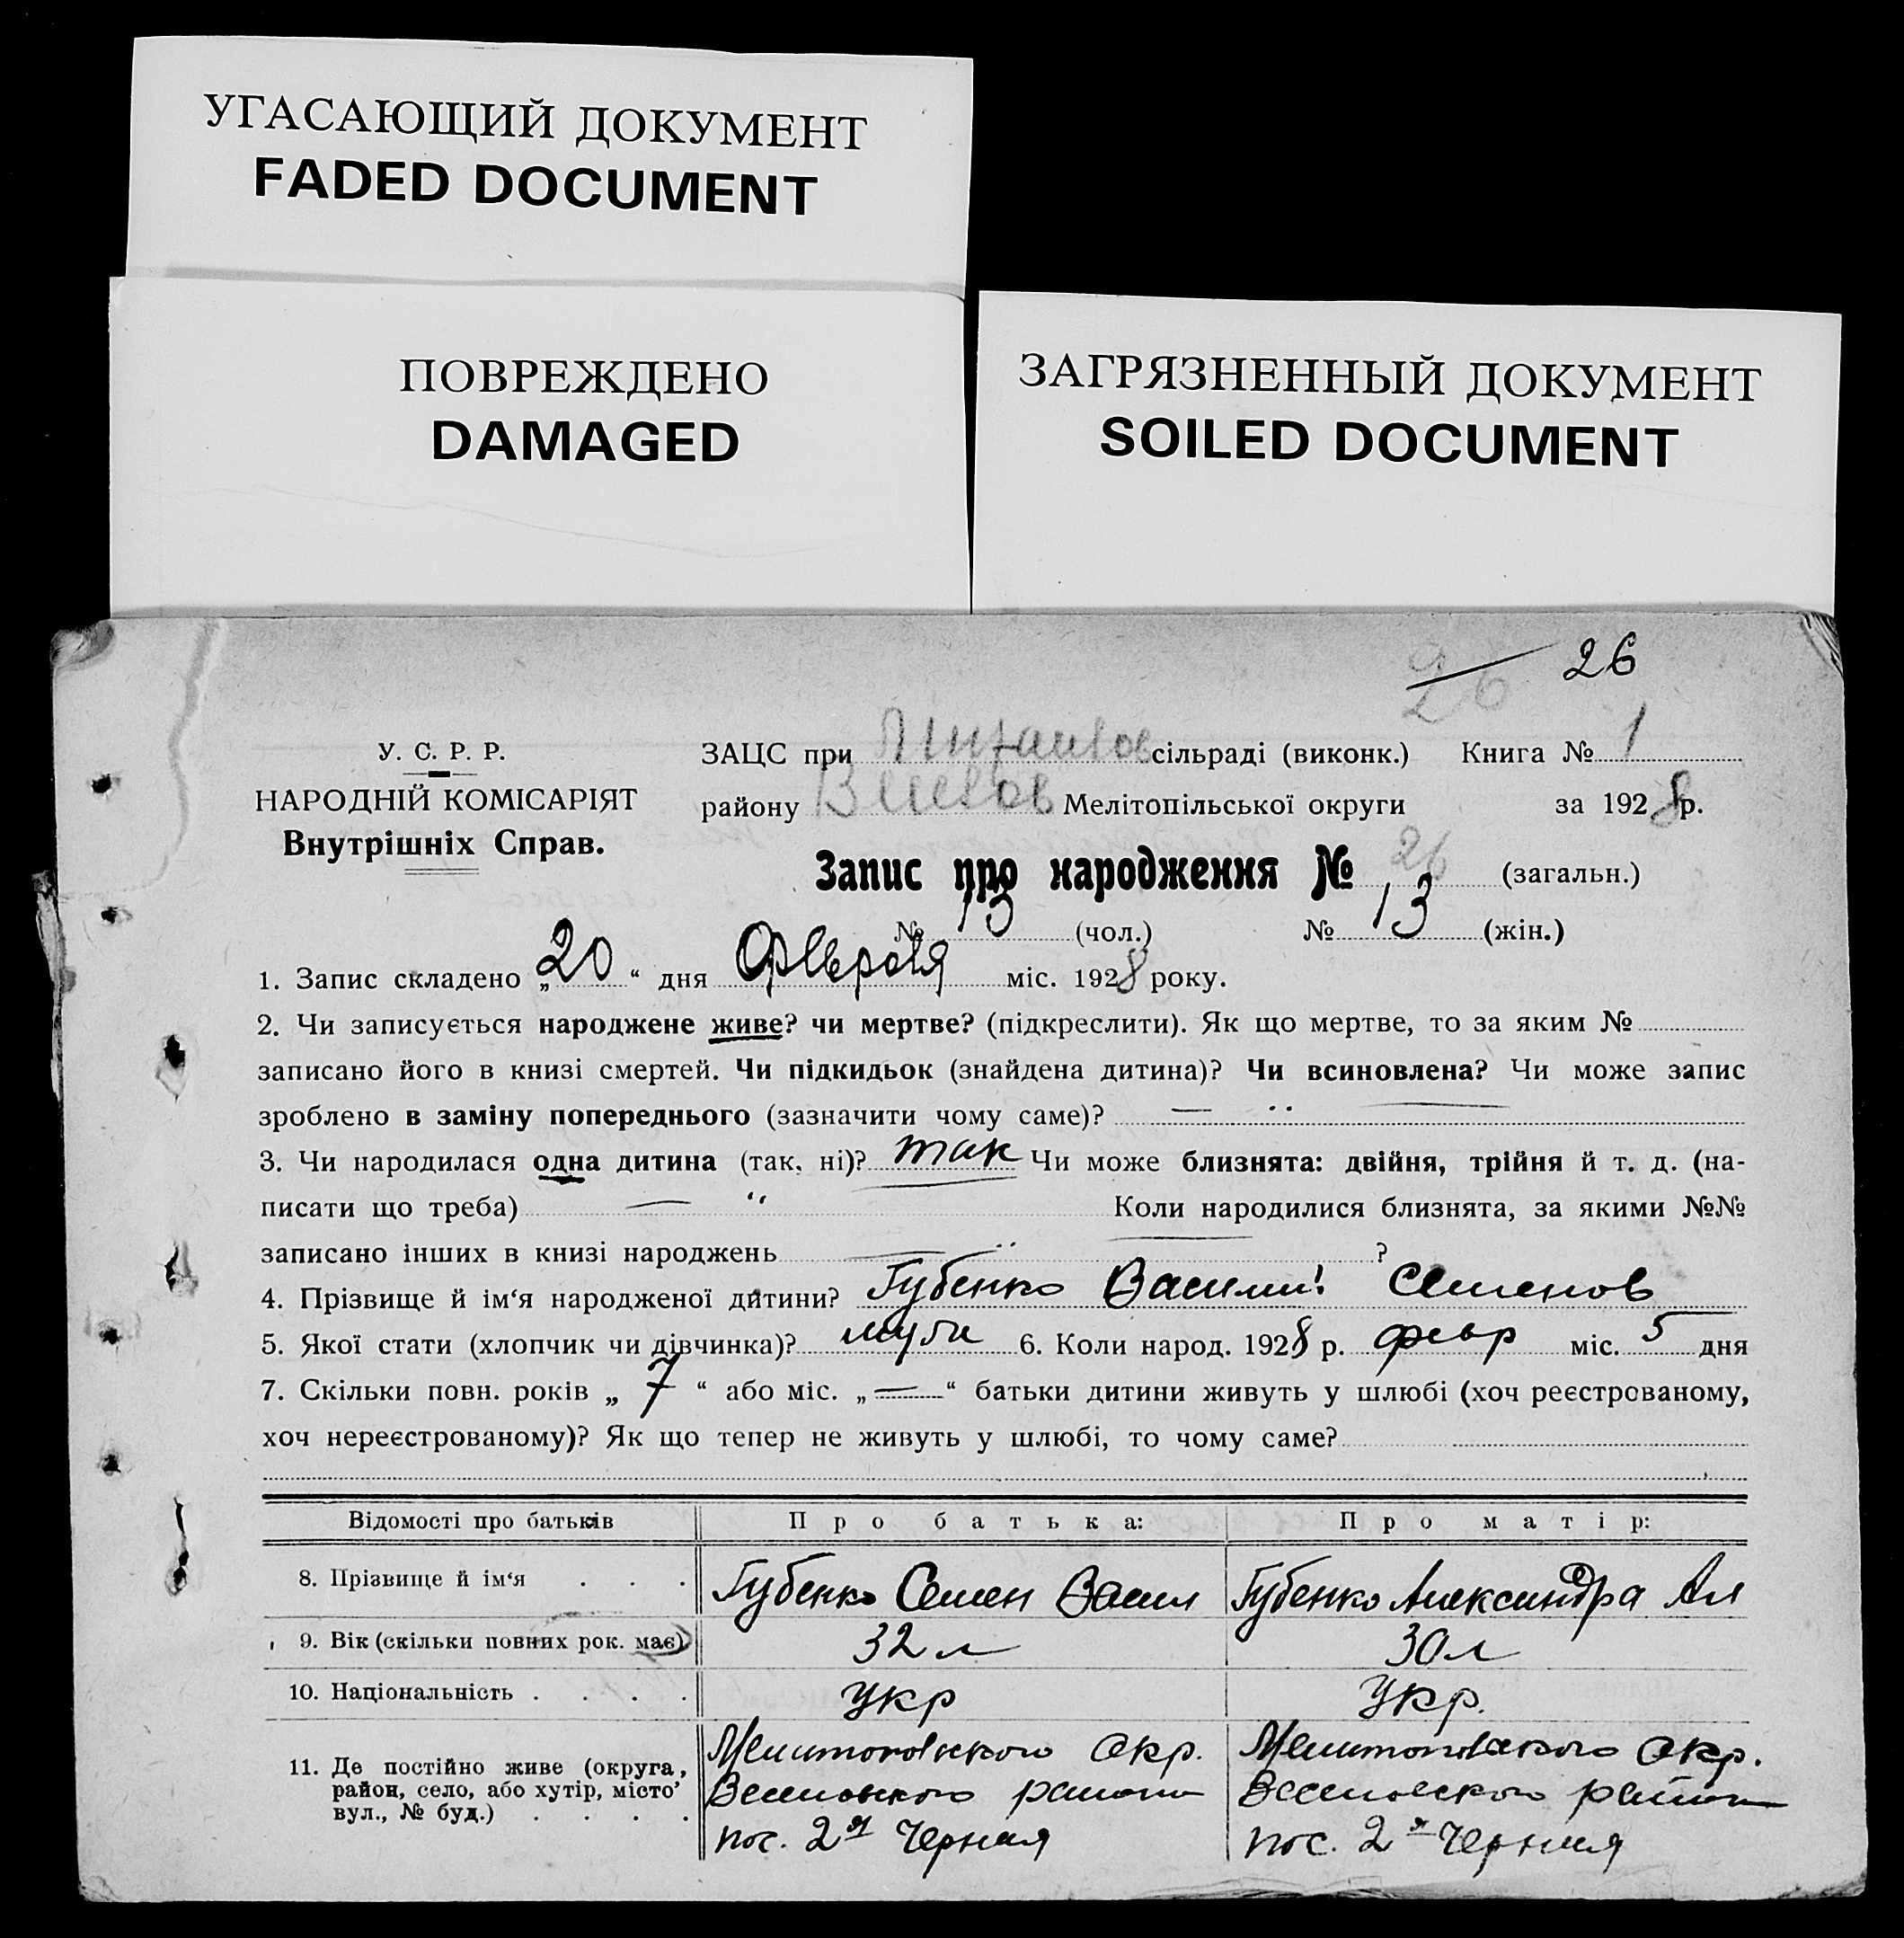 УГАСАЮЩИЙ ДОКУМЕНТ
FADED DOCUMENT
ПОВРЕЖДЕНО
DAMAGED
ЗАГРЯЗНЕННЫЙ ДОКУМЕНТ
SOILED DOCUMENT
26 26
У. С. Р. Р.
НАРОДНІЙ КОМІСАРІЯТ
Внутрішніх Справ.
ЗАЦС при сільраді (виконк.) Книга № 1
району Весел​ов Мелітопільської округи за 1928 р.
Запис про народження № 26 (загальн.)
№ 13 (чол.) № 13 (жін.)
1. Запис складено „20“ дня Февраля міс. 1928 року.
2. Чи записується народжене живе? чи мертве? (підкреслити). Як що мертве, то за яким №
записано його в книзі смертей. Чи підкидьок (знайдена дитина)? Чи всиновлена? Чи може запис
зроблено в заміну попереднього (зазначити чому саме)? — „ —
3. Чи народилася одна дитина (так, ні)? так Чи може близнята: двійня, трійня й т. д. (на-
писати що треба) — „ — Коли народилися близнята, за якими №№
записано інших в книзі народжень — „ — ?
4. Прізвище й ім‘я народженої дитини? Губенко Василий Семенов
5. Якої стати (хлопчик чи дівчинка)? муж 6. Коли народ. 1928 р. февр міс. 5 дня
7. Скільки повн. років „ 7 “ або міс. „ — “ батьки дитини живуть у шлюбі (хоч реєстрованому,
хоч нереєстрованому)? Як що тепер не живуть у шлюбі, то чому саме?
Відомості про батьків Про батька: Про матір:
8. Прізвище й ім‘я . . . Губенко Семен Васил Губенко Александра Ал
9. Вік (скільки повних рок. має) 32 л 30 л
10. Національність . . . . укр укр.
11. Де постійно живе (округа, Мелитопольского Окр. Мелитопольского Окр.
район, село, або хутір, місто’ Веселовского района Веселовского района
вул., № буд.) . . . . пос. 2я Черная пос. 2я Черная